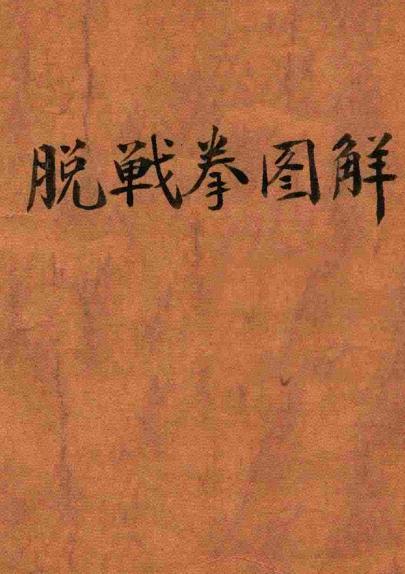 脱戦拳图解